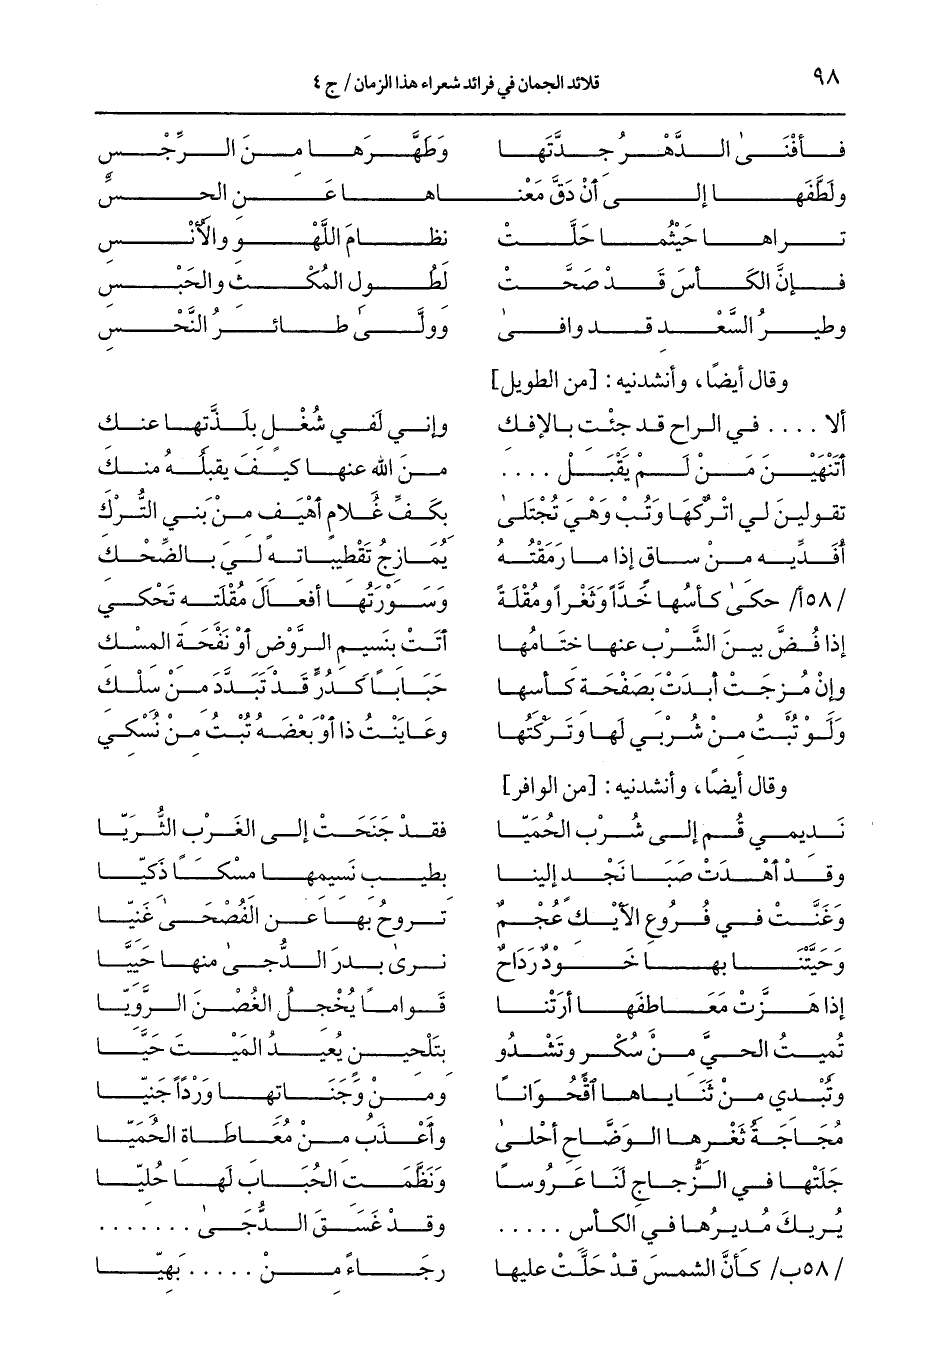 ٩٨ قلائد الجمان في فرائد شعراء هذا الزمان/ ج ٤
فأَفْنَىٰ الدَّهْرُ جدَّتَها وَطَهَّرَها مِنَ الرِّجْسِ
ولَطَّفَها إلى أَنْ دَقَّ مَعْناها عَنِ الحسِّ
تراها حَيْثُما حَلَّتْ نظامَ اللَّهْوِ والأُنْسِ
فإنَّ الكَأسَ قَدْ ضَحَّتْ لطُولِ المُكْثِ والحَبْسِ
وطيرُ السَّعْدِ قد وافىٰ وولَّىٰ طائرُ النَّحْسِ
وقال أيضًا، وأنشدنيه: [من الطويل]
ألا .... في الراح قد جئت بالإفك وإني لَفي شُغْلٍ بلَذَّتها عنك
أتنْهَيْنَ مَنْ لَمْ يَقْبَلْ .... منَ الله عنها كيفَ يقبَلُه منك
تقولينَ لي اتْركْها وَتُبْ وَهْيَ تُجْتَلىٰ بكَفِّ غُلامٍ أهْيَفٍ منْ بَني التُّرْكِ
أفَدِّيه منْ ساقٍ إذا ما رَمَقْتَهُ يُمَازجُ تَقْطيباته ليَ بالضَّحْك
/٥٨أ/ حكىٰ كأسُها خَدًّا وَثَغْرًا وَمُقْلَةً وَسَوْرَتُها أفعالَ مُقْلَته تَحْكي
إذا فُضَّ بينَ الشَّرْبِ عنها ختَامُها أتَتْ بنَسيمِ الرَّوْضِ أوْ نَفْحَة المسْك
وإنْ مُزجَتْ أبدَتْ بصَفْحَة كأسها حَبَابًا كَدُرٍّ قَدْ تَبَدَّدَ منْ سلْك
وَلَوْ تُبْتُ منْ شُرْبي لَها وَتَرَكْتُها وعَايَنْتُ ذا أوْ بَعْضَهُ تُبْتُ منْ نُسْكي
وقال أيضًا، وأنشدنيه: [من الوافر]
نَديمي قُمْ إلى شُرْبِ الحُمَيّا فقدْ جَنَحَتْ إلى الغَرْبِ الثُّرَيّا
وقَدْ أهْدَتْ صَبَا نَجْدٍ إلينا بطيبِ نَسيمها مسْكًا ذكيّا
وَغَنَّتْ في فُروعِ الأَيْكِ عُجْمٌ تروحُ بها عنِ الفُصْحىٰ غَنيّا
وَحَيَّتْنا بها خَوْدٌ رَدَاحٌ نرى بدرَ الدُّجىٰ منها حَيّا
إذا هَزَّتْ مَعَاطفَها أرَتْنا قوامًا يُخْجلُ الغُصْنَ الرَّويّا
تُميتُ الحيَّ منْ سُكْرٍ وتَشْدُو بتَلْحينٍ يُعيدُ المَيْتَ حَيَّا
وتُبْدي منْ ثَنَاياها أُقْحُوَانًا ومنْ وَجَنَاتها وَرْدًا جَنيّا
مُجَاجَةُ ثَغْرها الوَضَّاحِ أحْلى وأعْذَبُ منْ مُعَاطاة الحُمَيّا
جَلَتْها في الزُّجاجِ لَنا عَرُوسًا وَنَظَّمَتِ الحُبَابَ لَها حُليّا
يُريكَ مُديرُها في الكَأسِ ..... وقدْ غَسَقَ الدُّجىٰ .......
/٥٨ب/ كَأنَّ الشمسَ قد حَلَّتْ عليها رجَاءً منْ ..... بَهيّا